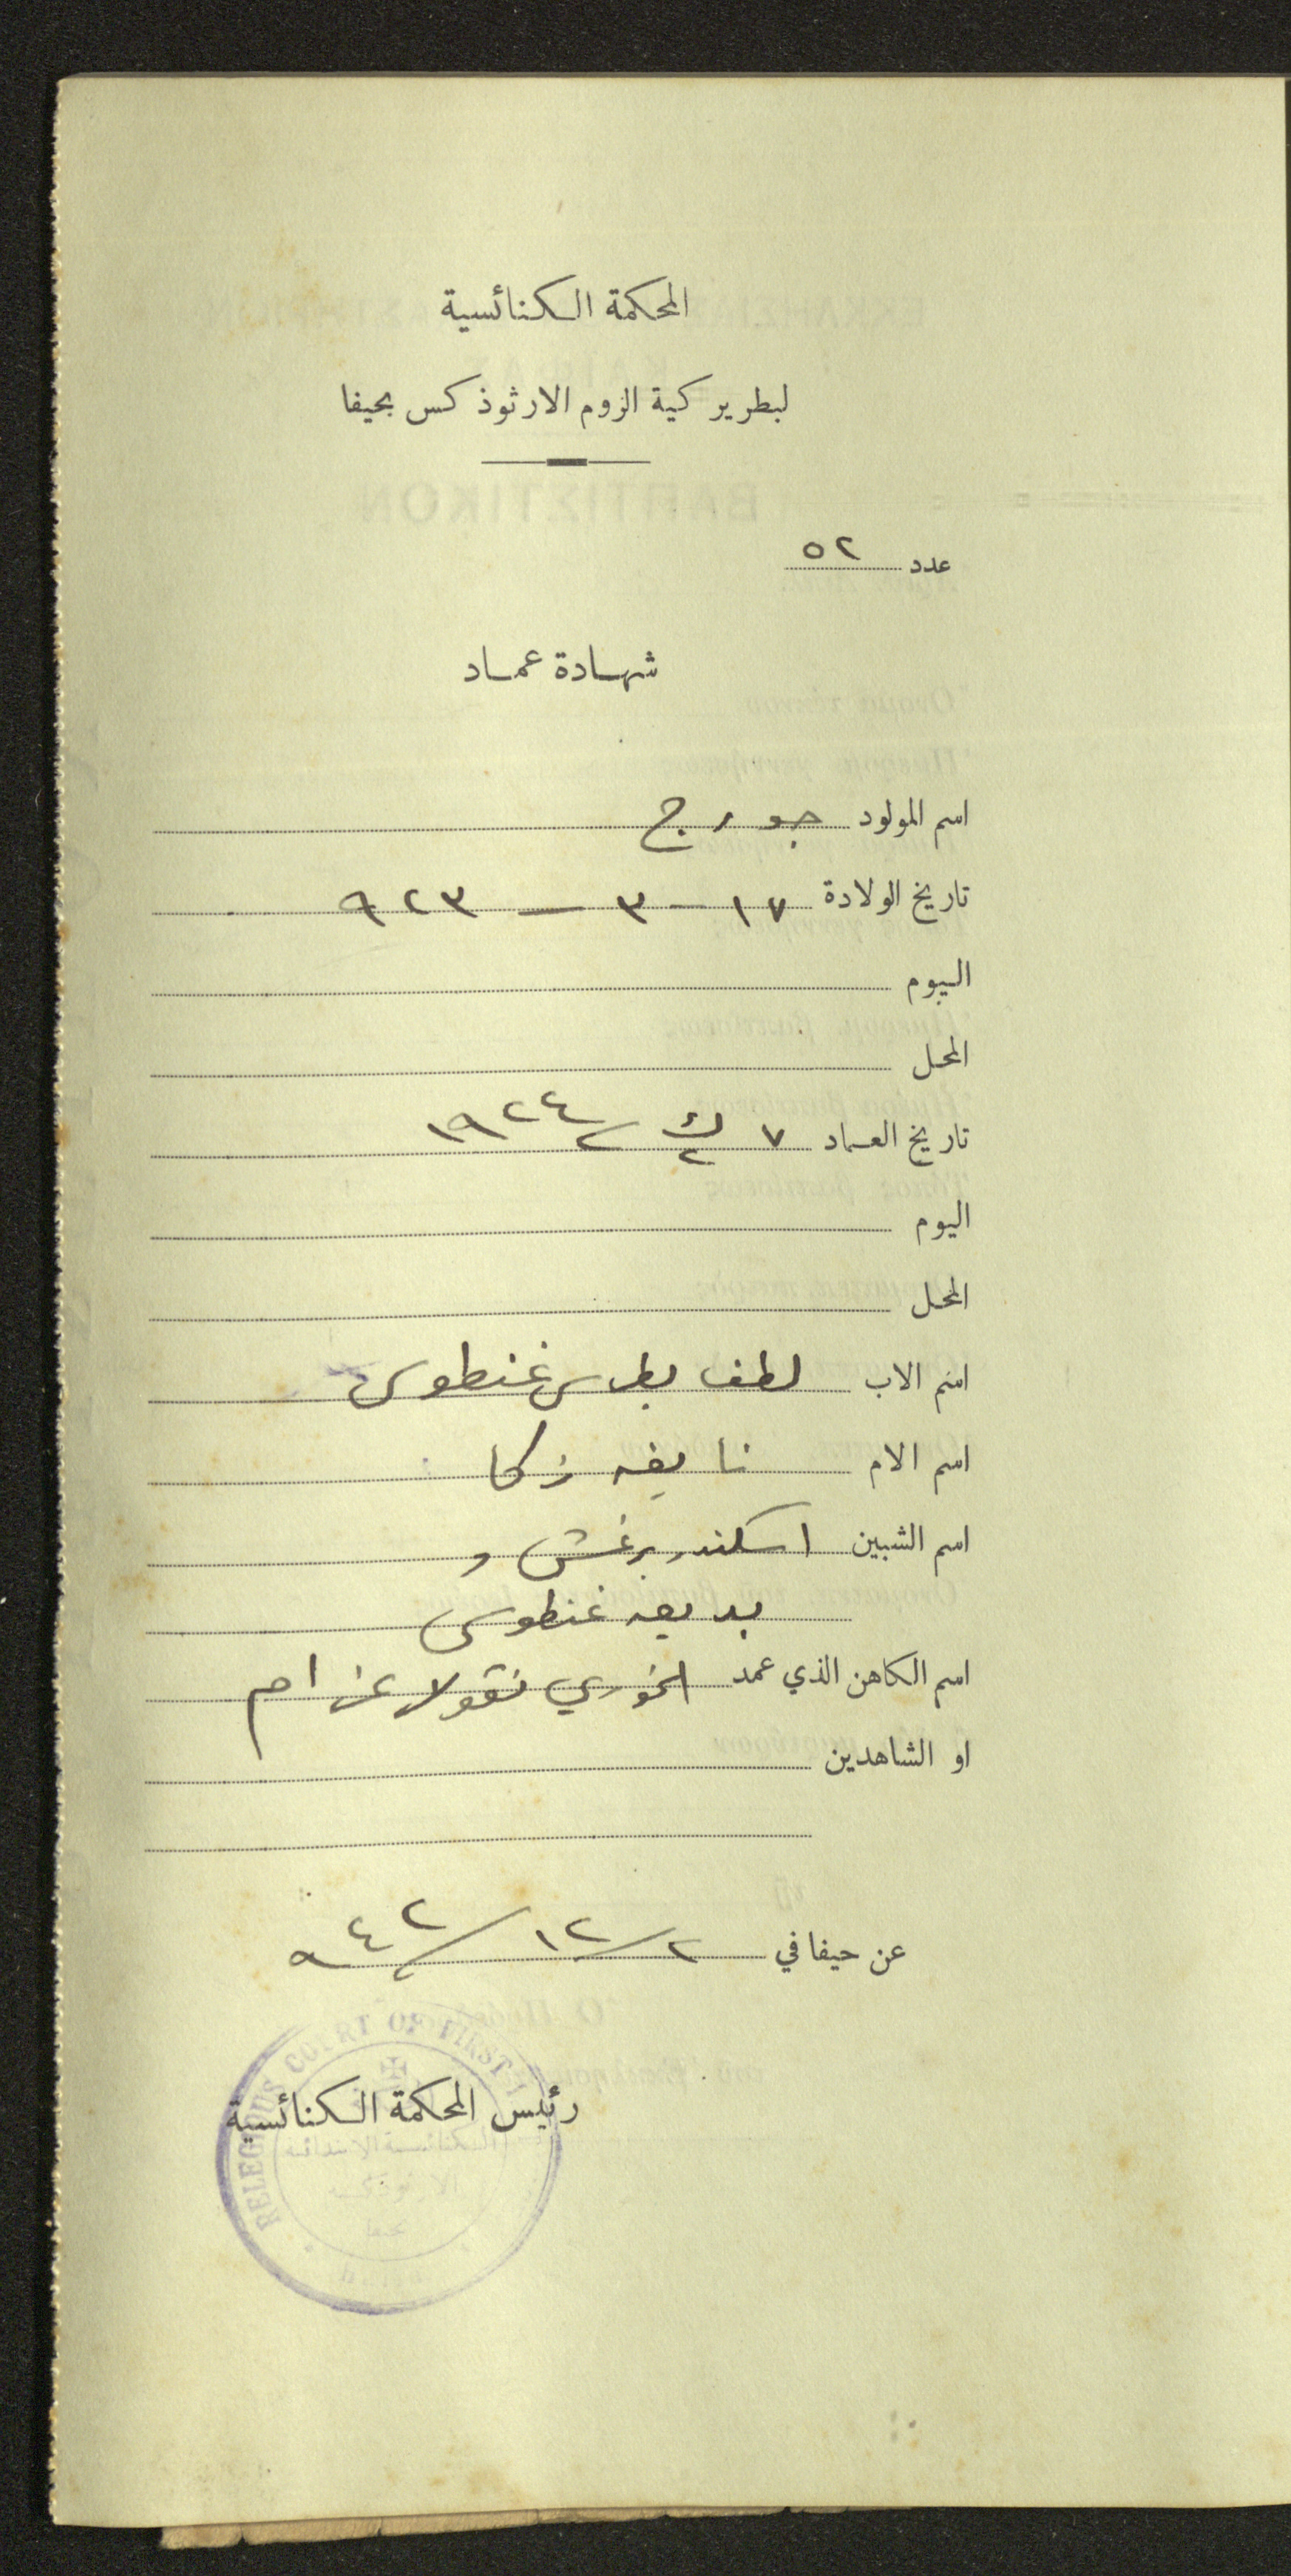 المحكمة الكنائسية
لبطريركية الروم الارثوذكس بحيفا
عدد ٥٢
شهادة عماد
اسم المولود جورج
تاريخ الولادة ١٧ - ٣ - ٩٢٣
اليوم
المحل
تاريخ العماد ٧ ك٢ / ١٩٢٤
اليوم
المحل
اسم الاب لطف بطرس غنطوس
اسم الام نايفه زكا
اسم الشبين اسكندر برغش و
بديعه غنطوس
اسم الكاهن الذي عمد الخوري نقولا عزام
او الشاهدين
عن حيفا في ٢ / ١٢ / ٩٤٢
رئيس المحكمة الكنائسية
RELEGIOUS COURT OF FIRST
الكنائسية الابتدائية
الارثوذكسية
بحيفا